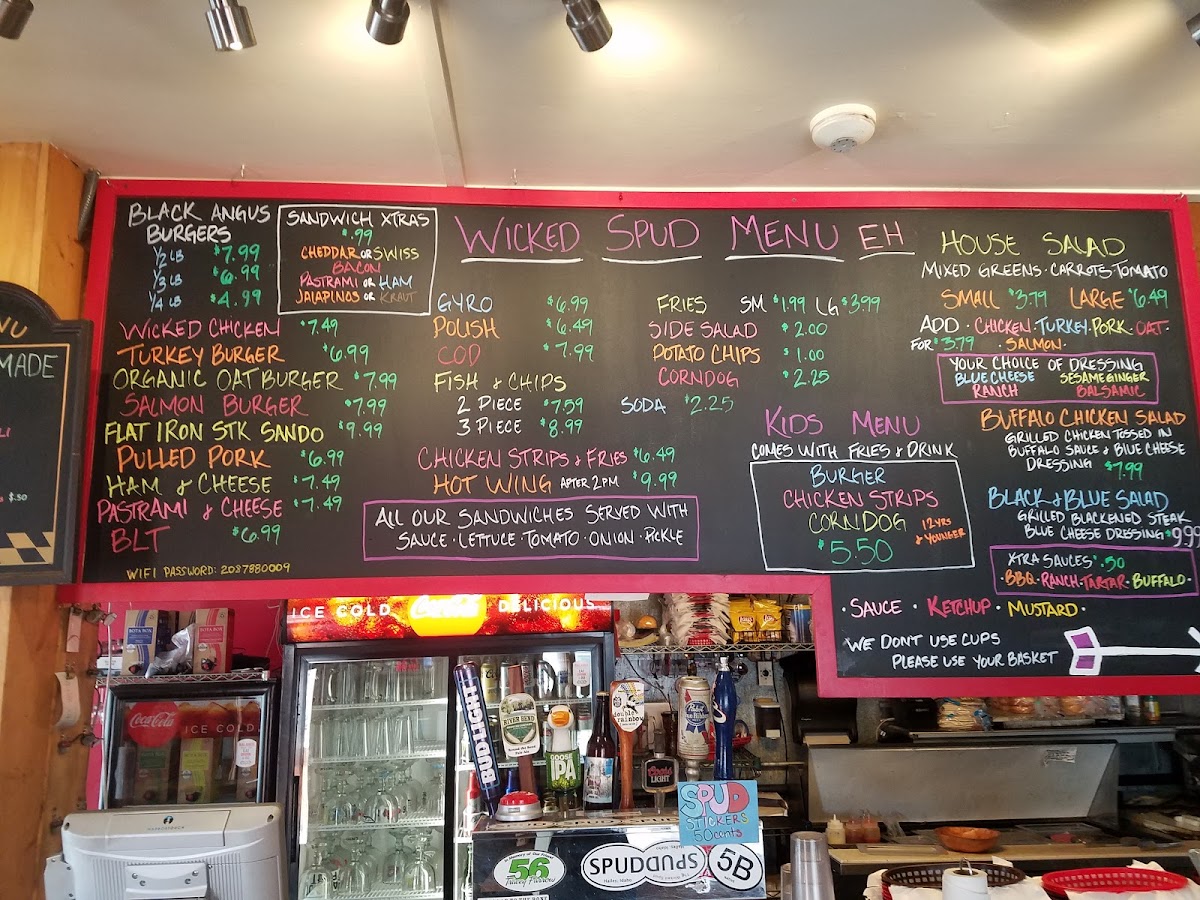 BLACK ANGUS
BURGERS
1/2 LB $7.99
1/3 LB $6.99
1/4 LB $4.99
WICKED CHICKEN $7.49
TURKEY BURGER $6.99
ORGANIC OAT BURGER $7.99
SALMON BURGER $7.99
FLAT IRON STK SANDO $9.99
PULLED PORK $6.99
HAM & CHEESE $7.49
PASTRAMI & CHEESE $7.49
BLT $6.99
WIFI PASSWORD: 2087880009
SANDWICH XTRAS
$.99
CHEDDAR OR SWISS
BACON
PASTRAMI OR HAM
JALAPINOS OR KRAUT
WICKED SPUD MENU EH
GYRO $6.99
POLISH $6.49
COD $7.99
FISH & CHIPS
2 PIECE $7.59
3 PIECE $8.99
CHICKEN STRIPS & FRIES $6.49
HOT WING AFTER 2PM $9.99
ALL OUR SANDWICHES SERVED WITH
SAUCE · LETTUCE · TOMATO · ONION · PICKLE
FRIES SM $1.99 LG $3.99
SIDE SALAD $2.00
POTATO CHIPS $1.00
CORNDOG $2.25
SODA $2.25
KIDS MENU
COMES WITH FRIES & DRINK
BURGER
CHICKEN STRIPS
CORNDOG
$5.50
12 YRS
& YOUNGER
HOUSE SALAD
MIXED GREENS · CARROTS · TOMATO
SMALL $3.79 LARGE $6.49
ADD · CHICKEN · TURKEY · PORK · OAT ·
FOR $3.79 · SALMON ·
YOUR CHOICE OF DRESSING
BLUE CHEESE SESAME GINGER
RANCH BALSAMIC
BUFFALO CHICKEN SALAD
GRILLED CHICKEN TOSSED IN
BUFFALO SAUCE & BLUE CHEESE
DRESSING $7.99
BLACK & BLUE SALAD
GRILLED BLACKENED STEAK
BLUE CHEESE DRESSING $9.99
XTRA SAUCES $.50
· BBQ · RANCH · TARTAR · BUFFALO ·
· SAUCE · KETCHUP · MUSTARD ·
WE DON'T USE CUPS
PLEASE USE YOUR BASKET
NU
MADE
LI
$.50
ICE COLD Coca-Cola DELICIOUS
BOTA BOX
BOTA BOX
Coca-Cola ICE COLD
BUD LIGHT
RIVER BEND
GOOSE
IPA
double rainbow
Coors
LIGHT
Pabst
Blue Ribbon
SPUD
STICKERS
50 cents
56
SPUD SPUD
Hailey, Idaho
5B